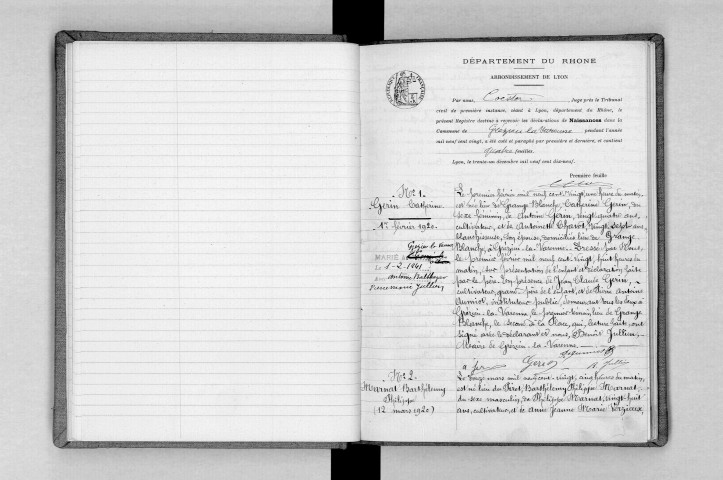 DÉPARTEMENT DU RHONE
ARRONDISSEMENT DE LYON
Par nous, Juge près le Tribunal
civil de première instance, séant à Lyon, département du Rhône, le
présent Registre destiné à recevoir les déclarations de Naissances dans la
Commune de Grézieu-la-Varenne pendant l'année
mil neuf cent vingt, a été coté et paraphé par première et dernière, et contient
quatre feuilles.
Lyon, le trente-un décembre mil neuf cent dix-neuf.
Première feuille
N° 1
Gerin Catherine
1er février 1920
MARIÉ à Grézieu la Varenne
Le 1-2-1941
Avec Antoine
Jullien
Le premier février mil neuf cent vingt, une heure du matin,
est née lieu de Grange Blanche, Catherine Gerin, du
sexe féminin, de Antoine Gerin, vingt quatre ans,
cultivateur, et de Antoinette Charot, vingt sept ans,
son épouse, domiciliés lieu de Grange
Blanche, à Grézieu-la-Varenne. Dressé par Nous,
le premier février mil neuf cent vingt, huit heures du
matin, sur présentation de l'enfant et déclaration faite
par le père. En présence de Jean Claude Gerin,
cultivateur, grand père de l'enfant, et de Antoine
instituteur public, demeurant tous les deux à
Grézieu-la-Varenne, le premier témoin, lieu de Grange
Blanche, le second à la Place, qui, lecture faite, ont
signé avec le déclarant et nous, Benoît Jullien,
Maire de Grézieu la Varenne
Gerin
B. Jullien
N° 2
Marnat Barthélemy
Philippe
(12 mars 1920)
Le douze mars mil neuf cent vingt, cinq heures du matin,
est né lieu du Barthélemy Philippe Marnat,
du sexe masculin, de Philippe Marnat, vingt huit
ans, cultivateur, et de Annie Jeanne Marie